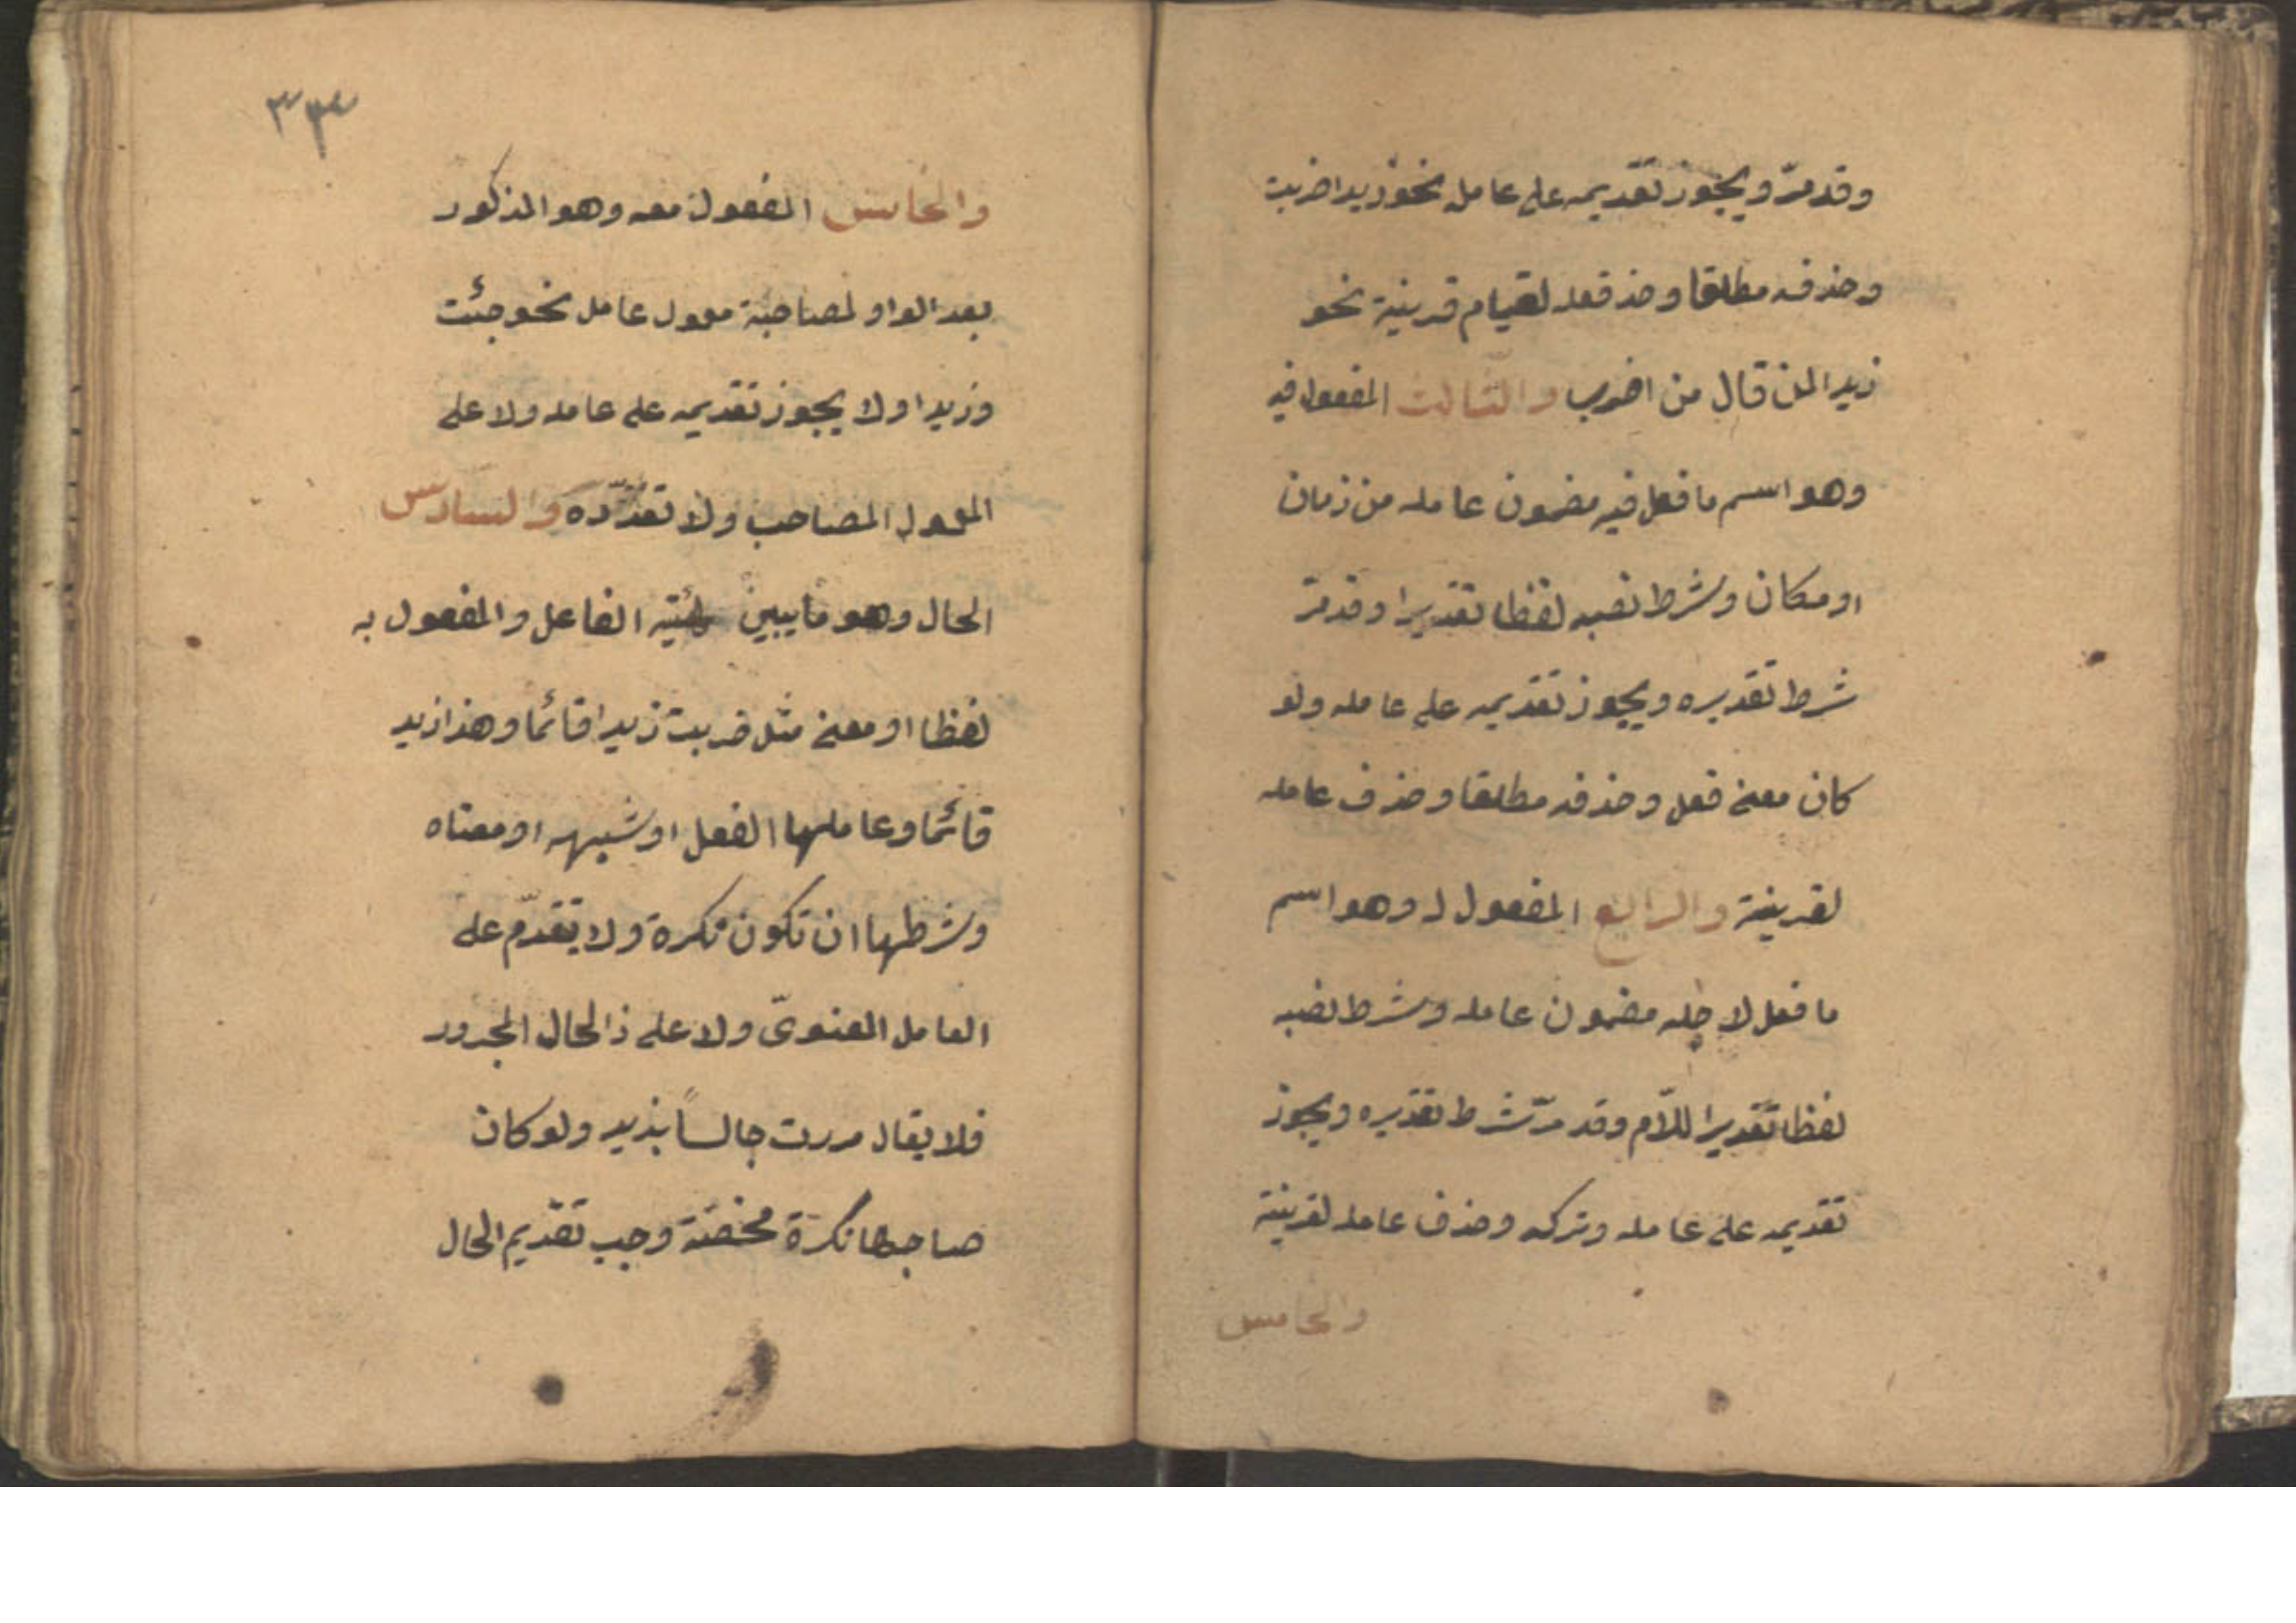 وقد مرّ ويجوز تقديمه على عامله نحو زيدا ضربت
وحذفه مطلقا وحذ فعله لقيام قرينة نحو
زيدا لمن قال من اضرب والثالث المفعول فيه
وهو اسم ما فعل فيه مضمون عامله من زمان
او مكان وشرط نصبه لفظا تقديرا وقد مرّ
شرط تقديره ويجوز تقديمه على عامله ولو
كان معنى فعل وحذفه مطلقا وحذف عامله
لقرينة والرابع المفعول له وهو اسم
ما فعل لاجله مضمون عامله وشرط نصبه
لفظا تقديرا للّام وقد مرّ شرط تقديره ويجوز
تقديمه على عامله وتركه وحذف عامله لقرينة
والخامس
٣٣
والخامس المفعول معه وهو المذكور
بعد الواو لمصاحبة معمول عامل نحو جئت
وزيدا ولا يجوز تقديمه على عامله ولا على
المعمول المصاحب ولا تعدّده والسادس
الحال وهو ما يبين هيئة الفاعل والمفعول به
لفظا او معنى مثل ضربت زيدا قائما وهذا زيد
قائما وعاملها الفعل او شبهه او معناه
وشرطها ان تكون نكرة ولا يتقدّم على
العامل المعنويّ ولا على ذالحال المجرور
فلا يقال مررت جالساً بزيد ولو كان
صاحبها نكرة محضة وجب تقديم الحال